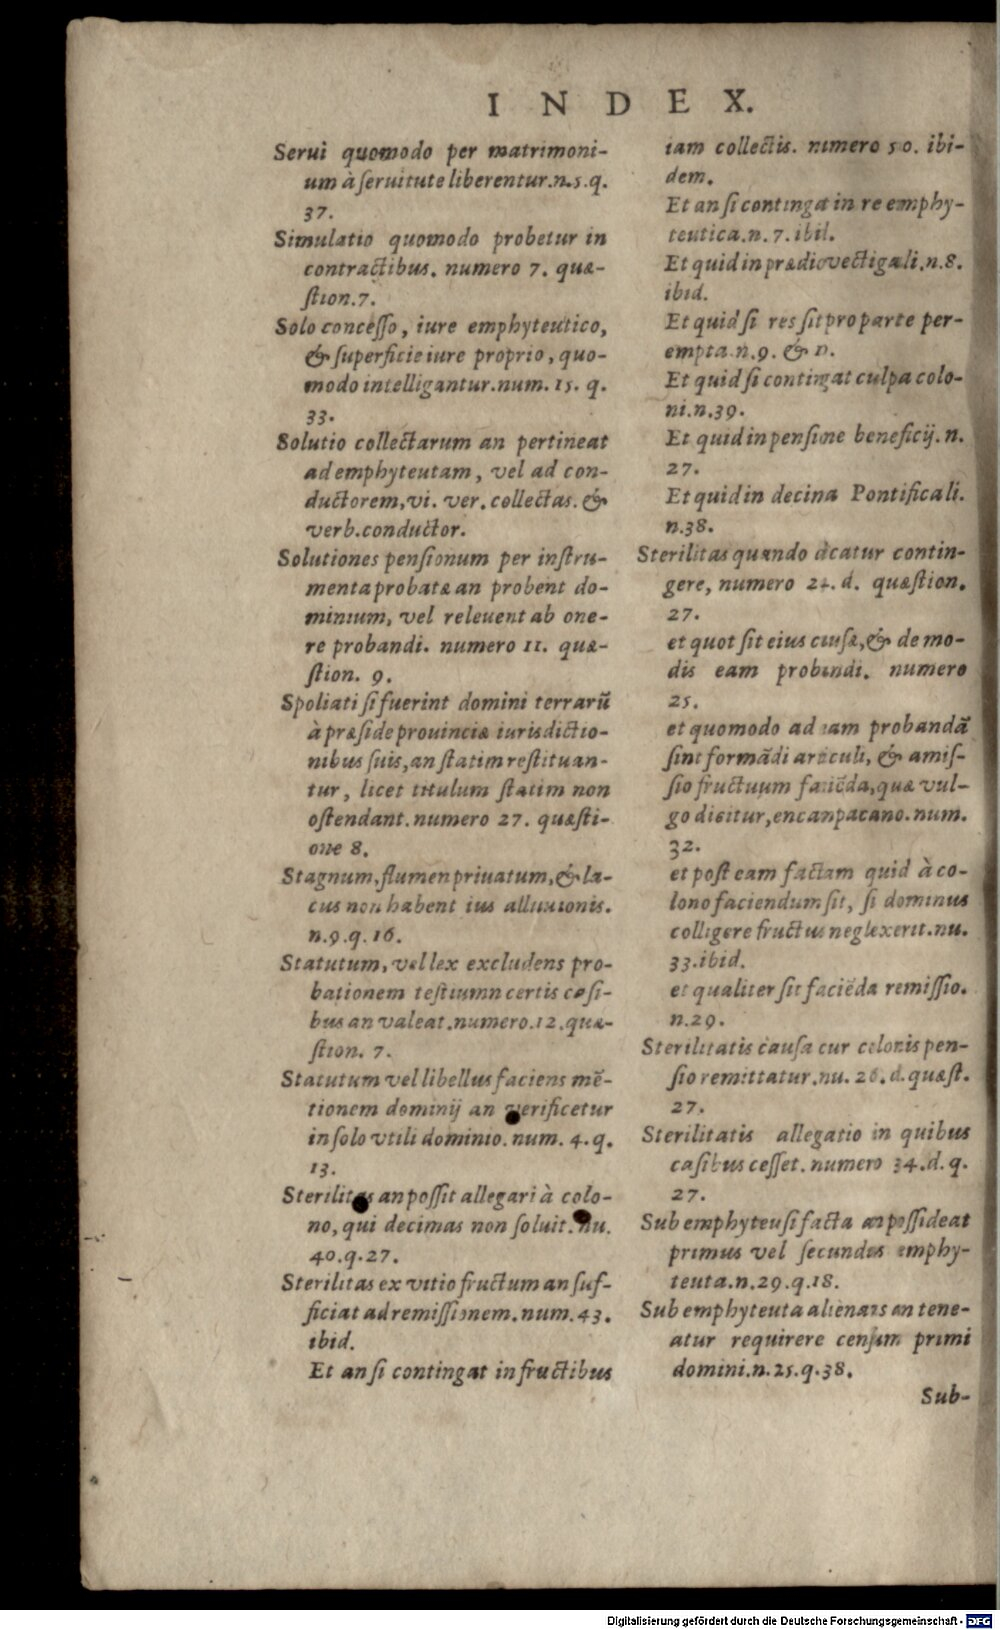 INDEX.
Serui quomodo per matrimoni-
um à ſeruitute liberentur.n.5.q.
37.
Simulatio quomodo probetur in
contractibus. numero 7. quæ-
ſtion.7.
Solo conceſſo, iure emphyteutico,
& ſuperficie iure proprio, quo-
modo intelligantur.num. 15. q.
33.
Solutio collectarum an pertineat
ad emphyteutam, vel ad con-
ductorem, vi. ver. collectas. &
verb.conductor.
Solutiones penſionum per inſtru-
menta probatæ an probent do-
minium, vel releuent ab one-
re probandi. numero 11. quæ-
ſtion. 9.
Spoliati ſi fuerint domini terrarū
à præſide prouinciæ iurisdictio-
nibus ſuis, an ſtatim reſtituan-
tur, licet titulum ſtatim non
oſtendant. numero 27. quæſti-
one 8.
Stagnum, flumen priuatum, & la-
cus non habent ius alluuionis.
n.9.q.16.
Statutum, vel lex excludens pro-
bationem teſtium n certis caſi-
bus an valeat.numero.12.quæ-
ſtion. 7.
Statutum vel libellus faciens mē-
tionem dominij an verificetur
in ſolo vtili dominio. num. 4.q.
13.
Sterilitas an poſſit allegari à colo-
no, qui decimas non ſoluit. nu.
40.q.27.
Sterilitas ex vitio fructum an ſuf-
ficiat ad remiſſionem. num.43.
ibid.
Et an ſi contingat in fructibus
iam collectis. numero 50. ibi-
dem.
Et an ſi contingat in re emphy-
teutica.n.7.ibid.
Et quid in prædio vectigali.n.8.
ibid.
Et quid ſi res ſit pro parte per-
empta.n.9. & n.
Et quid ſi contingat culpa colo-
ni.n.39.
Et quid in penſione beneficij. n.
27.
Et quid in decima Pontificali.
n.38.
Sterilitas quando dicatur contin-
gere, numero 24. d. quæſtion.
27.
et quot ſit eius cauſæ, & de mo-
dis eam probandi. numero
25.
et quomodo ad eam probandā
ſint formādi articuli, & amiſ-
ſio fructuum faciēda, quæ vul-
go dicitur, encanpacano. num.
32.
et poſt eam factam quid à co-
lono faciendum ſit, ſi dominus
colligere fructus neglexerit.nu.
33.ibid.
et qualiter ſit faciēda remiſſio.
n.29.
Sterilitatis cauſa cur colonis pen-
ſio remittatur.nu. 26.d.quæſt.
27.
Sterilitatis allegatio in quibus
caſibus ceſſet. numero 34.d.q.
27.
Sub emphyteuſi facta an poſſideat
primus vel ſecundus emphy-
teuta.n.29.q.18.
Sub emphyteuta alienans an tene-
atur requirere cenſum primi
domini.n.25.q.38.
Sub-
Digitalisierung gefördert durch die Deutsche Forschungsgemeinschaft - DFG